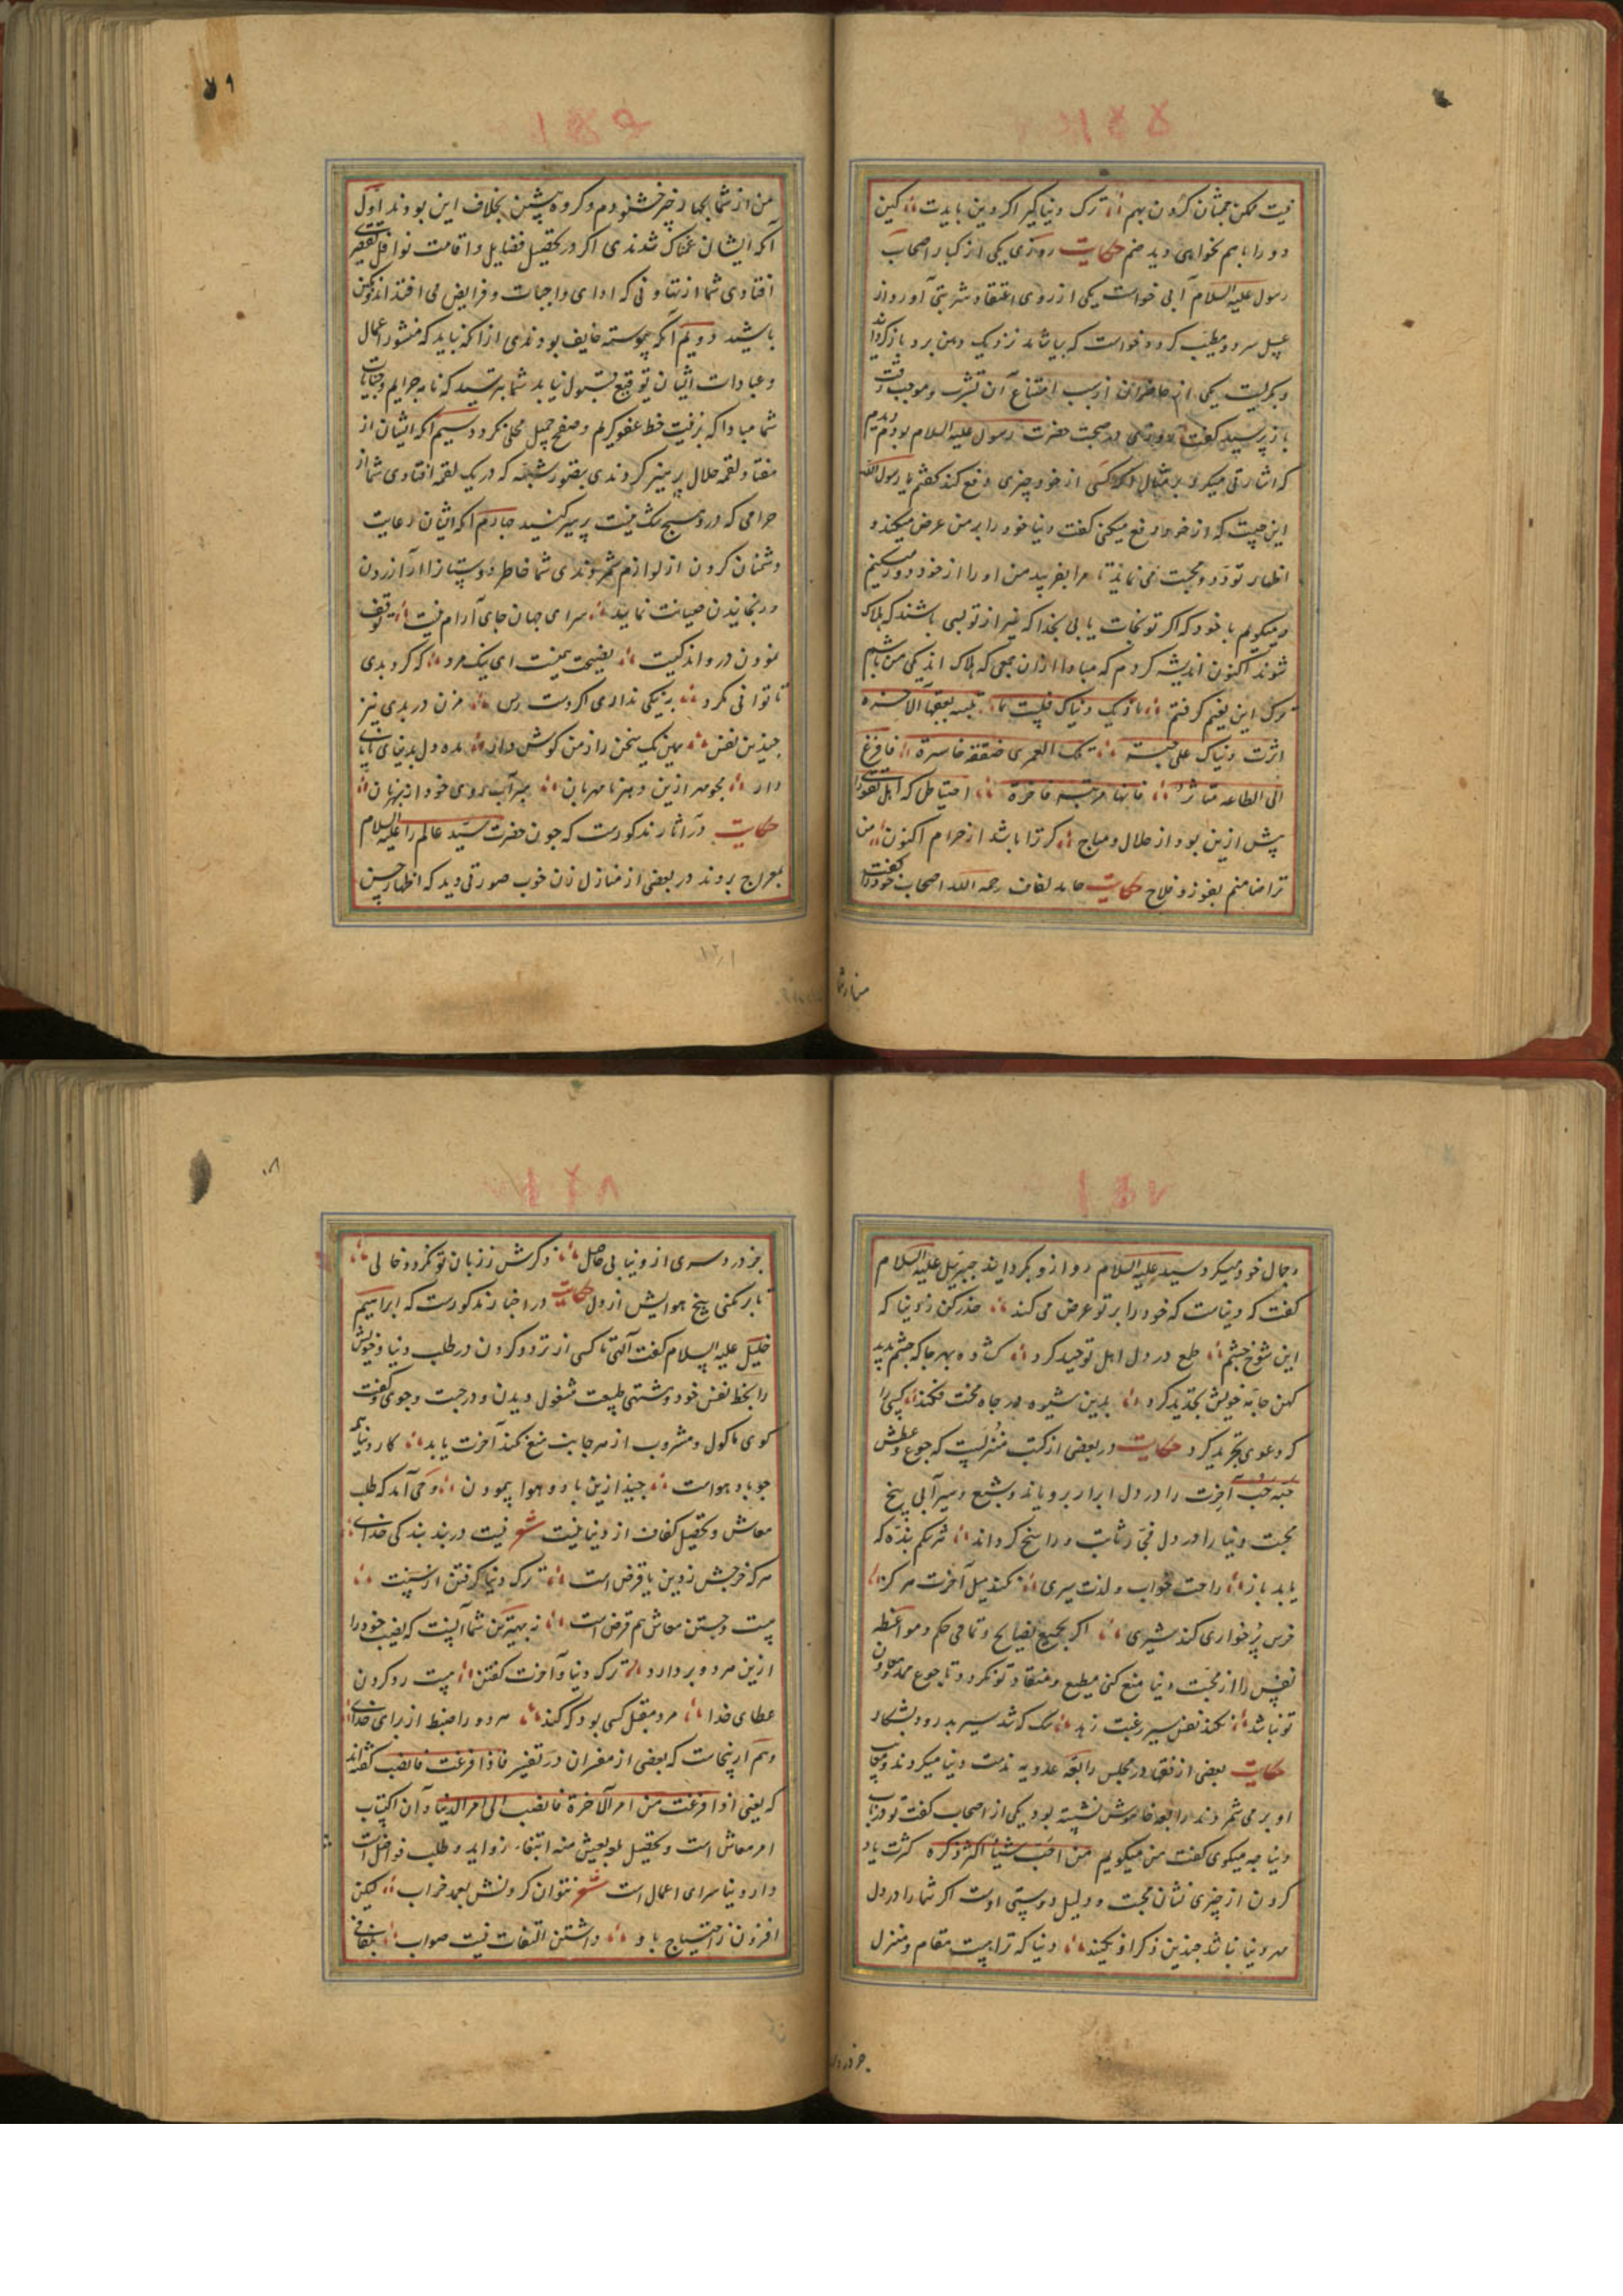 ۱۵۵
نیست ممکن جمشان کردن بهم ترک دنیا گیر اگر دین بایدت کین
دو را با هم نخواهی دید ضم حکایت روزی یکی از کبار اصحاب
رسول علیه السلام آبی خواست یکی از روی اعتقاد شربتی آورد از
عسل سرد و مطیب کرده خواست که بیاشامد نزدیک دهن برد باز گردانید
و بگریست یکی از حاضران از سبب امتناع آن تشرب و موجب رقت
باز پرسید گفت روزی در صحبت حضرت رسول علیه السلام بودم دیدم
که اشارتی میکرد بر مثال آنکه کسی از خود چیزی دفع کند گفتم یا رسول الله
این چیست که از خود دفع میکنی گفت دنیا خود را بر من عرض میکند و
اظهار تودد و محبت می نماید تا مرا بفریبد من او را از خود دور میکنم
و میگویم با خود که اگر تو نجات یابی بخدا که غیر از تو بسی باشند که هلاک
شوند اکنون اندیشه کردم که مبادا از ان جمعی که هلاک اند یکی من باشم
ترک این نعیم گرفتم
اثرت دنیاک علی تلک لعمری صفقة خاسرة فافرغ
الی الطاعة فانها مرتبة فاخرة احتیاطی که اهل تقوی را
پیش ازین بود از حلال و مباح گر ترا باشد از حرام اکنون من
ترا ضامنم بفوز و فلاح حکایت حامد لفاف رحمه الله اصحاب خود را گفت
من از شما
۱۵۶
من از شما بچهار چیز خشنودم و گروه پیشین بخلاف این بودند اول
آنکه ایشان غمناک شدندی اگر در تحصیل فضایل و اقامت نوافل تقصیری
افتادی شما از تهاونی که ادای واجبات و فرایض می افتد اندوهگین
باشید دویم آنکه پیوسته خایف بودندی از آنکه نباید که منشور اعمال
و عبادات ایشان توقیع قبول نیابد شما بترسید که نامه جرایم و جنایات
شما مبادا که بزینت خط عفو کریم و صفح جمیل محلی نگردد سیم آنکه ایشان از
هفتاد لقمه حلال پرهیز کردندی بتصور شبهه که در یک لقمه افتادی شما از
حرامی که در وی هیچ شک نیست پرهیز کنید چهارم آنکه ایشان رعایت
دشمنان کردن از لوازم شمردندی شما خاطر دوستان را از آزردن
و رنجانیدن صیانت نمایید سرای جهان جای آرام نیست توقف
نمودن درو اندکیست نصیحت همینست ای نیک مرد که گرد بدی
تا توانی مگرد به نیکی نداری اگر دست رس مزن در بدی نیز
چندین نفس همین یک سخن را ز من گوش دار مده دل بدنیای ناپای
دار مجو مهر ازین دهر نامهربان مبر آب روی خود از بهر نان
حکایت در آثار مذکورست که چون حضرت سید عالم را علیه السلام
بمعراج بردند در بعضی از منازل زن خوب صورتی دید که اظهار حسن
۱۵۷
و جمال خود میکرد سید علیه السلام رو ازو بگردانید جبرئیل علیه السلام
گفت که دنیاست که خود را بر تو عرض می کند حذر کن ز دنیا که
این شوخ چشم طمع در دل اهل توحید کرد گشوده بهر جا که چشم بدید
کهن جامه خویش تجدید کرد بدین شیوه در چاه محنت فکند کسی را
که دعوی تجرید کرد حکایت در بعضی از کتب منزلست که جوع و عطش
حبه حب آخرت را در دل ابرار برویاند و شبع و سیرآبی بیخ
محبت دنیا را در دل فجار ثابت و راسخ گرداند شرکم بنده که
یابد باز راحت خواب و لذت سیری نکند میل آخرت هر کز
خرس پرخواری کند شیری اگر بجمیع نصایح و تمامی حکم و مواعظ
نفس را از محبت دنیا منع کنی مطیع و منقاد تو نگردد تا جوع ممد و معاون
تو نباشد نکند نفس سیر رغبت زهد سگ که شد سیر بد رود بشکار
حکایت بعضی از فقها در مجلس رابعه عدویه مذمت دنیا میکردند و معایب
او بر می شمردند رابعه خاموش نشسته بود یکی از اصحاب گفت تو در باب
دنیا چه میگوی گفت من میگویم من احب شیئا اکثر ذکره کثرت یاد
کردن از چیزی نشان محبت و دلیل دوستی اوست اگر شما را در دل
مهر دنیا نباشد چندین ذکر او نکنید دنیا که ترا نیست مقام و منزل
جز درد
۱۵۸
جز درد سری از دنیا بی حاصل ذکرش ز زبان تو نگردد خالی
تا بر نکنی بیخ هوایش از دل حکایت در اخبار مذکورست که ابراهیم
خلیل علیه السلام گفت الهی تا کسی از تردد کردن در طلب دنیا و خویش
را بحظ نفس خود و مشتهی طبیعت مشغول دیدن و در جست و جوی و گفت
گوی ماکول و مشروب از هر جا بند منع نکند آخرت یابد کار دنیا همه
چو باد هواست چند ازین باد و هوا پیمودن وحی آمد که طلب
معاش و تحصیل کفاف از دنیا نیست شعر نیست در بند بندگی خدای
هر که خرجش ز دین یا قرض است ترک دنیا گرفتن از سنت
نیست و جستن معاش هم فرض است نه بهترین شما آنست که نصیب خود را
ازین هر دو بر دارد ترک دنیا و آخرت گفتن نیست رو کردن
عطای خدا مرد مقبل کسی بود که کند هر دو را ضبط از برای خدای
و هم از ینجاست که بعضی از مفسران در تفسیر فاذا فرغت فانصب گفته اند
که یعنی اذا فرغت من امر الآخرة فانصب الی امر الدنیا و آن اکتساب
امر معاش است و تحصیل ما یعیش منه ابتغاء زواید و طلب فواضل است
دار دنیا سرای اعمال است شعر نتوان کردنش بعمد خراب لیکن
افزون ز احتیاج باو داشتن التفات نیست صواب